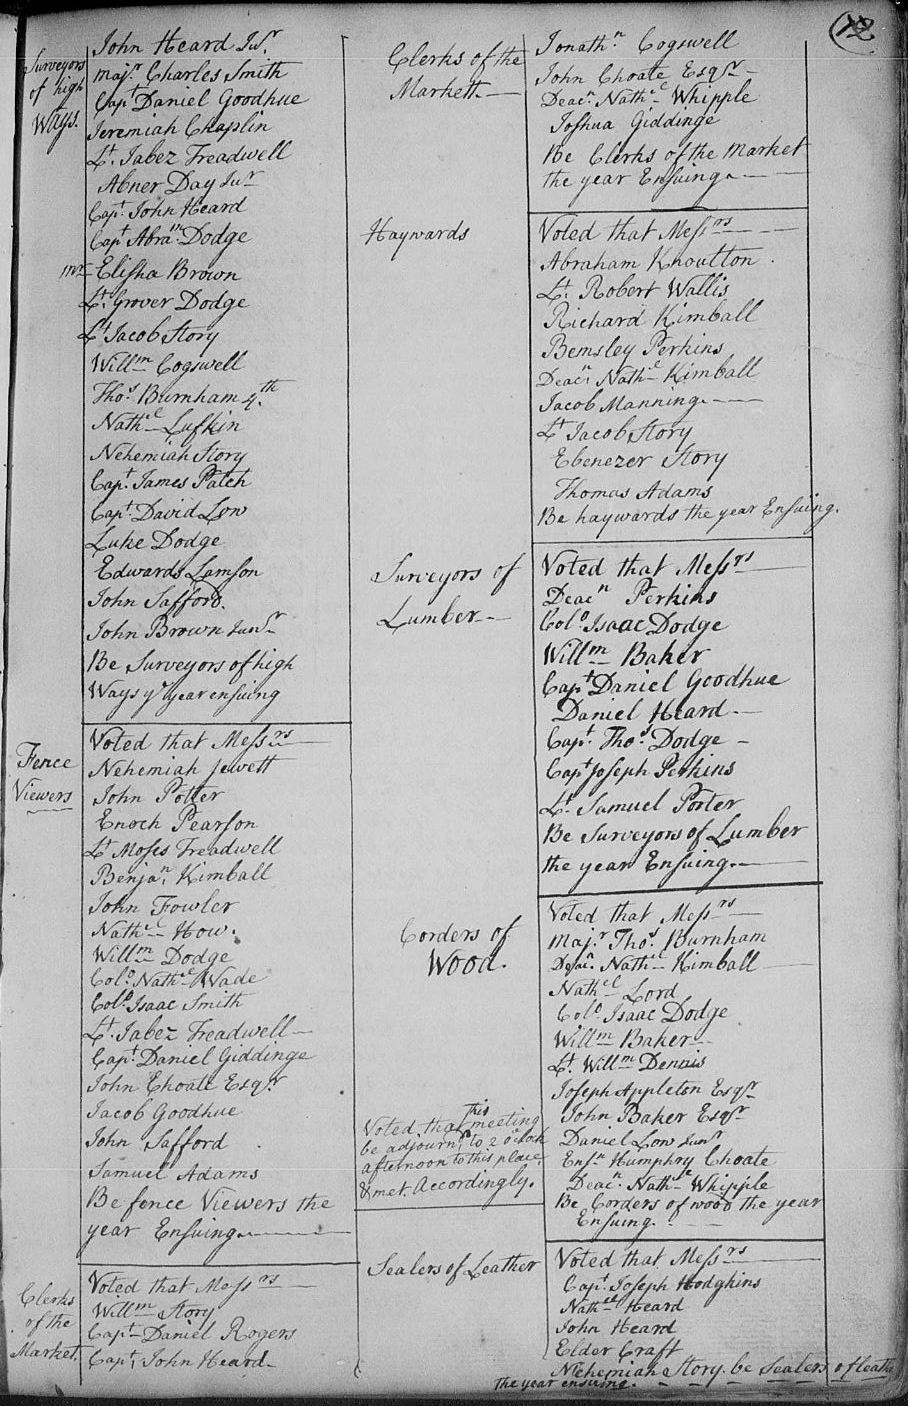 12
Surveyors
of high
Ways.
John Heard Junr
Majr Charles Smith
Capt Daniel Goodhue
Jeremiah Chaplin
Lt. Jabez Treadwell
Abner Day Junr
Capt. John Heard
Capt Abram. Dodge
mr Elisha Brown
Lt. Grover Dodge
Lt Jacob Story
Willm Cogswell
Thos. Burnham 4th.
Nathel Lufkin
Nehemiah Story
Capt. James Patch
Capt. David Low
Luke Dodge
Edwards Lamson
John Safford.
John Brown Junr
Be Surveyors of high
Ways ye year ensuing
Fence
Viewers
Voted that Messrs
Nehemiah Jewett
John Potter
Enoch Pearson
Lt Moses Treadwell
Benjan. Kimball
John Fowler
Nathel How.
Willm Dodge
Colo. Nathel Wade
Colo. Isaac Smith
Lt. Jabez Treadwell
Capt. Daniel Giddinge
John Choate Esqr
Jacob Goodhue
John Safford
Samuel Adams
Be fence Viewers the
year Ensuing
Clerks
of the
Market.
Voted that Messrs
Willm Story
Capt Daniel Rogers
Capt. John Heard
Clerks of the
Markett
Jonathn Cogswell
John Choate Esqr
Deacn. Nathel Whipple
Joshua Giddinge
Be Clerks of the Market
the year Ensuing
Haywards
Voted that Messrs
Abraham Knoulton
Lt. Robert Wallis
Richard Kimball
Bemsley Perkins
Deacn. Nathel Kimball
Jacob Manning
Lt Jacob Story
Ebenezer Story
Thomas Adams
Be haywards the year Ensuing.
Surveyors of
Lumber
Voted that Messrs
Deacn Perkins
Colo. Isaac Dodge
Willm Baker
Capt Daniel Goodhue
Daniel Heard
Capt. Thos. Dodge
Capt Joseph Perkins
Lt. Samuel Porter
Be Surveyors of Lumber
the year Ensuing.
Corders of
Wood.
Voted that Messrs
Majr. Thos. Burnham
Deacn. Nathel Kimball
Nathel Lord
Colo Isaac Dodge
Willm Baker
Lt. Willm Dennis
Joseph Appleton Esqr
John Baker Esqr
Daniel Low Junr
Ensn Humphry Choate
Deacn. Nathel Whipple
Be Corders of wood the year
Ensuing.
Voted that this meeting
be adjournd to 2 oClock
afternoon to this place,
& met Accordingly.
Sealers of Leather
Voted that Messrs
Capt. Joseph Hodgkins
Nathel Heard
John Heard
Elder Craft
Nehemiah Story. be Sealers of leather
the year ensuing.